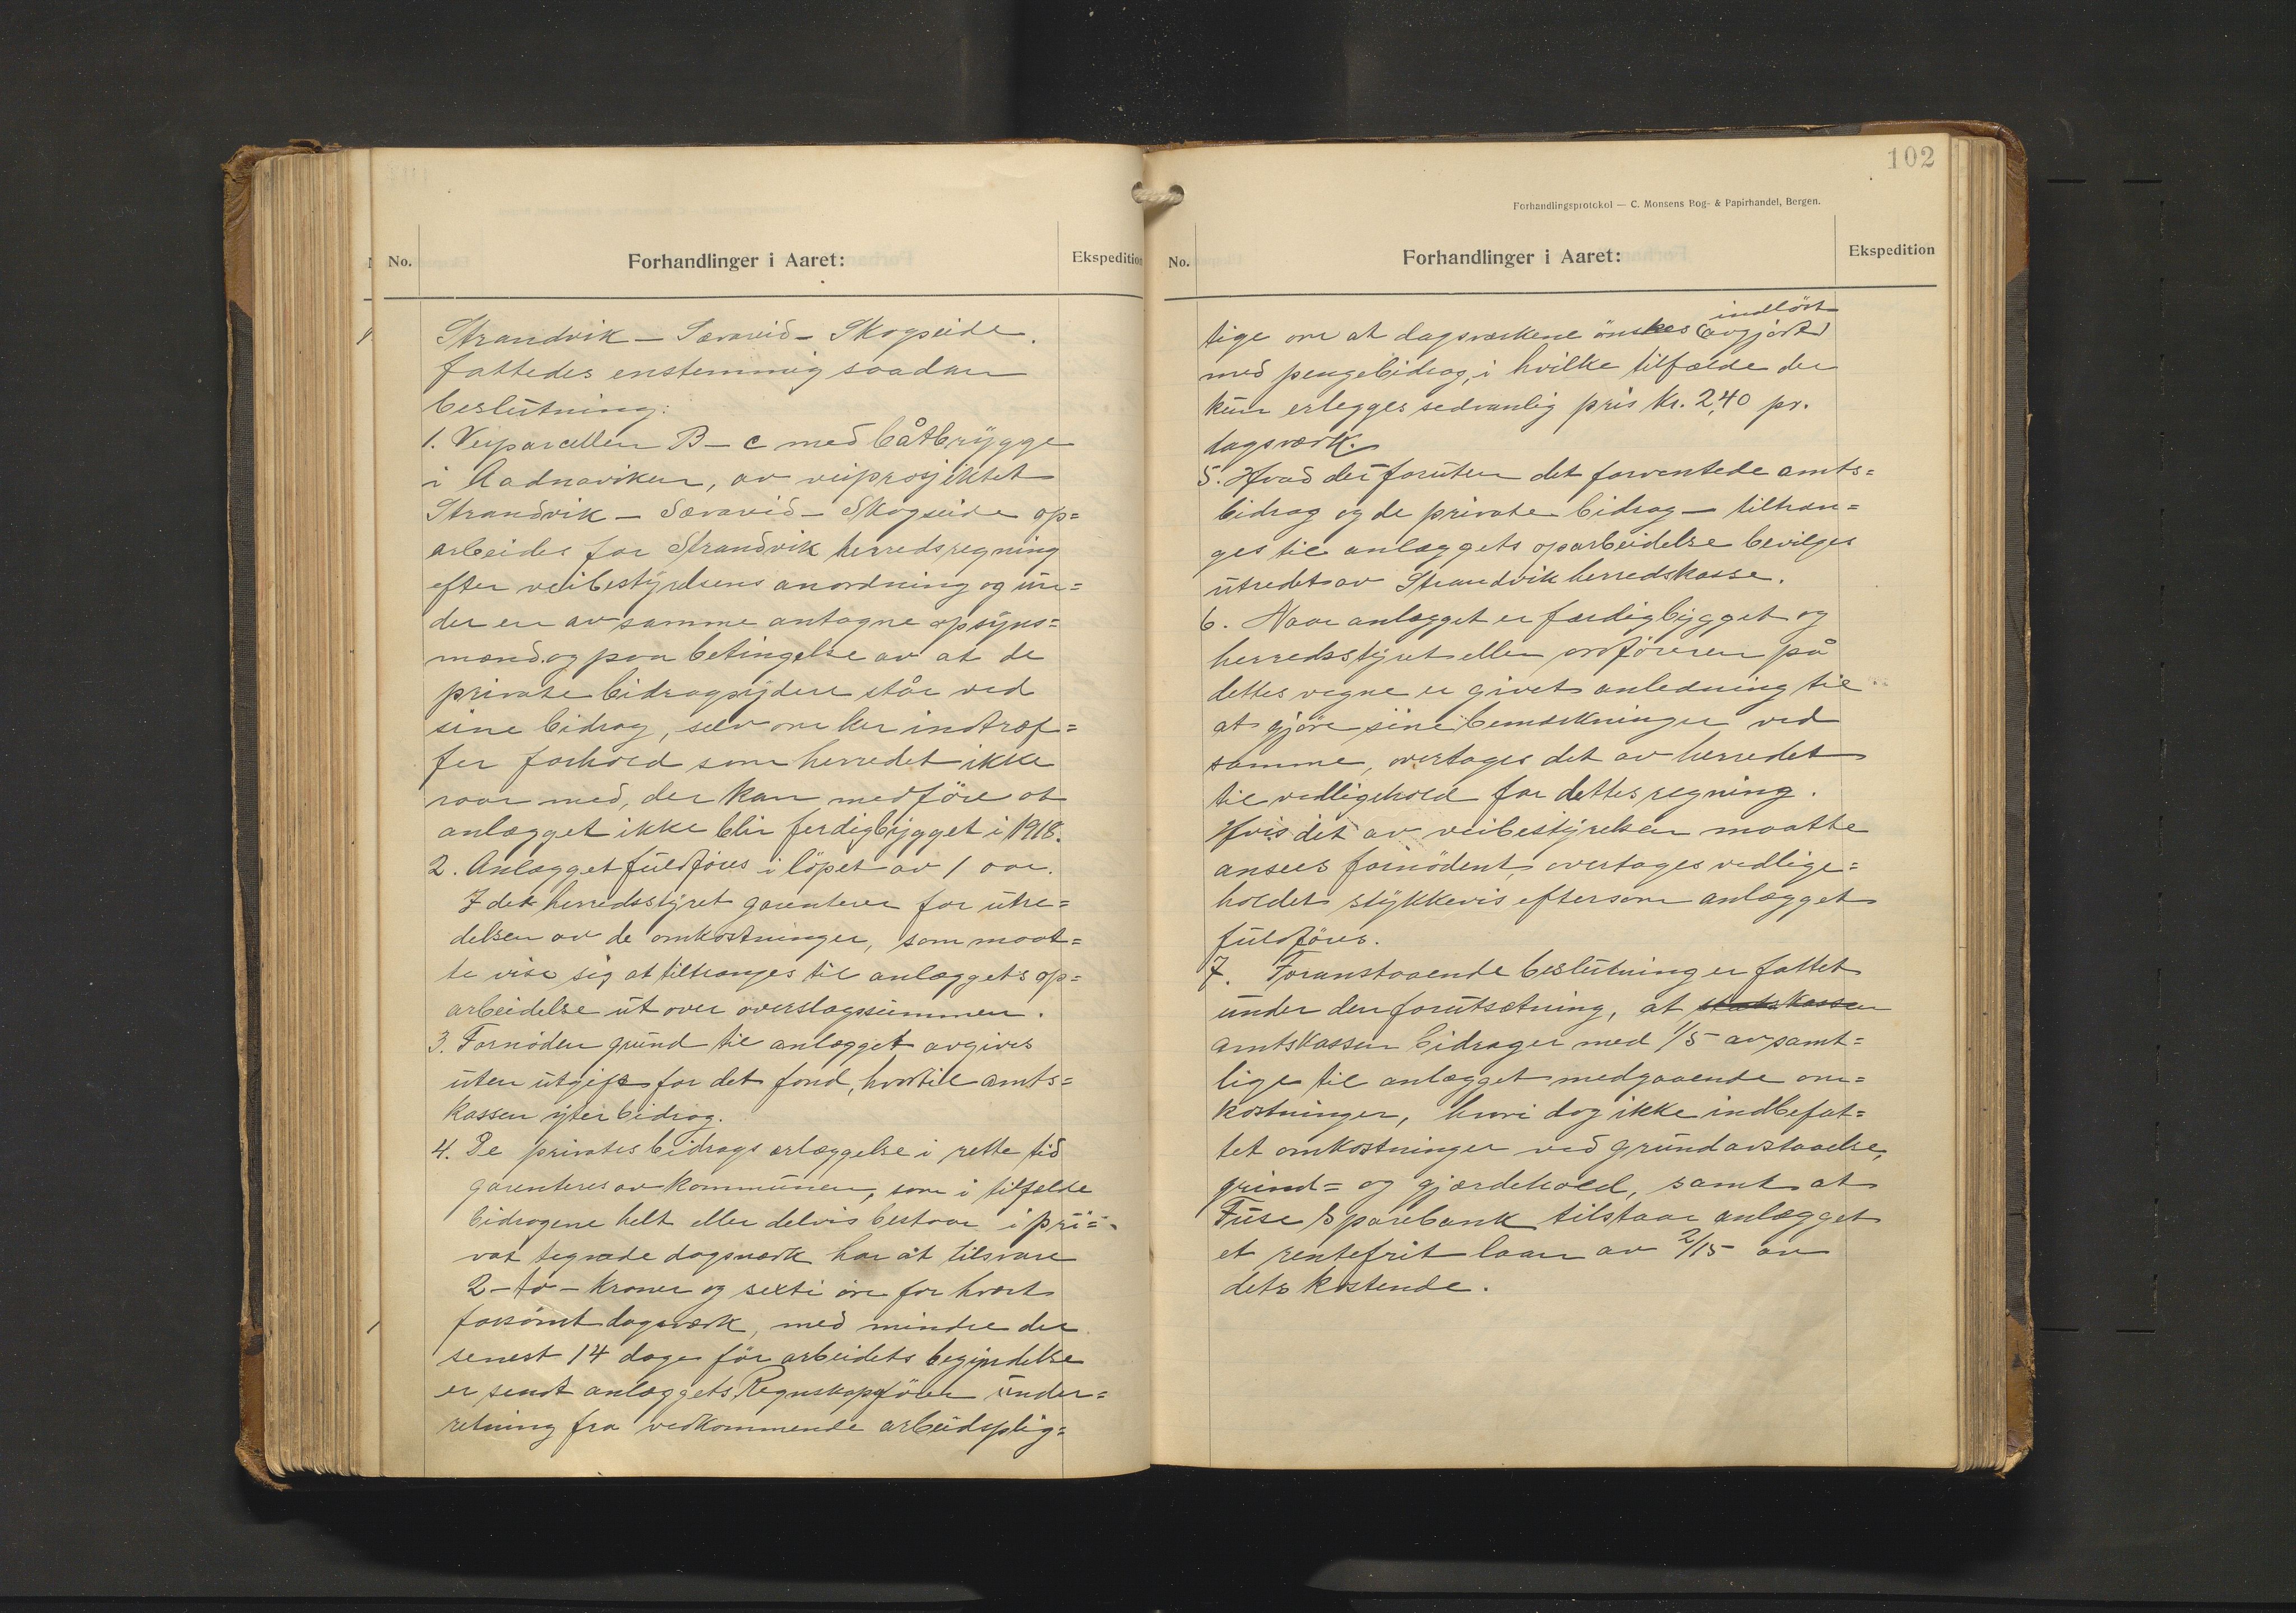 No.
Forhandlinger i Aaret:
Ekspedition
Strandvik – Sævareid – Skogseide.
fattedes enstemmig saadan
beslutning:
1. Veiparcellen B – c med båtbrygge
i Aadnaviken, av veiprosjektet
Strandvik – Sævareid – Skogseide op=
arbeides for Strandvik herredsregning
efter veibestyrelsens anordning og un=
der en av samme antagne opsyns=
mand og paa betingelse av at de
private bidragsydere står ved
sine bidrag, selv om her indtræf=
fer forhold som herredet ikke
raar med, der kan medføre at
anlægget ikke blir ferdigbygget i 1918.
2. Anlægget fuldføres i löpet av 1 aar.
Idet herredsstyret garenterer for utre=
delsen av de omkostninger, som maat=
te vise sig at tiltrænges til anlæggets op=
arbeidelse ut over overslagssummen.
3. Fornöden grund til anlægget avgives
uten utgift for det fond, hvortil amts=
kassen yter bidrag.
4. De privates bidrags erlæggelse i rette tid
garenteres av kommunen, som i tilfælde
bidragene helt eller delvis bestaar i pri=
vat tegnede dagsværk har at tilsvare
2 – to – kroner og seksti öre for hvert
forsömt dagsværk, med mindre der
senest 14 dage för arbeidets begyndelse
er sendt anlæggets Regnskapsförer under=
retning fra vedkommende arbeidsplig=
102
Forhandlingsprotokol — C. Monsens Bog- & Papirhandel, Bergen.
No.
Forhandlinger i Aaret:
Ekspedition
indlöst
tige om at dagsværkene önskes (avgjort)
med pengebidrag, i hvilke tilfælde der
kun erlegges sedvanlig pris Kr. 2,40 pr.
dagsværk.
5. Hvad der foruten det forventede amts=
bidrag og de private bidrag – tiltræn=
ges til anlæggets oparbeidelse bevilges
utredet av Strandvik herredskasse.
6. Naar anlægget er færdigbygget og
herredsstyret eller ordföreren på
dettes vegne er givet anledning til
at gjöre sine bemerkninger ved
samme, overtages det av herredet
til vedligehold for dettes regning.
Hvis det av veibestyrelsen maatte
ansees fornödent, overtages vedlige=
holdet stykkevis eftersom anlægget
fuldföres.
7. Foranstaaende beslutning er fattet
under den forutsætning, at statskassen
amtskassen bidrager med 1/5 av samt=
lige til anlægget medgaaende om=
kostninger, hvori dog ikke indbefat=
tet omkostninger ved grundavstaaelse,
grind= og gjærdehold, samt at
Fuse Sparebank tilstaar anlægget
et rentefrit laan av 2/15 av
dets kostende.